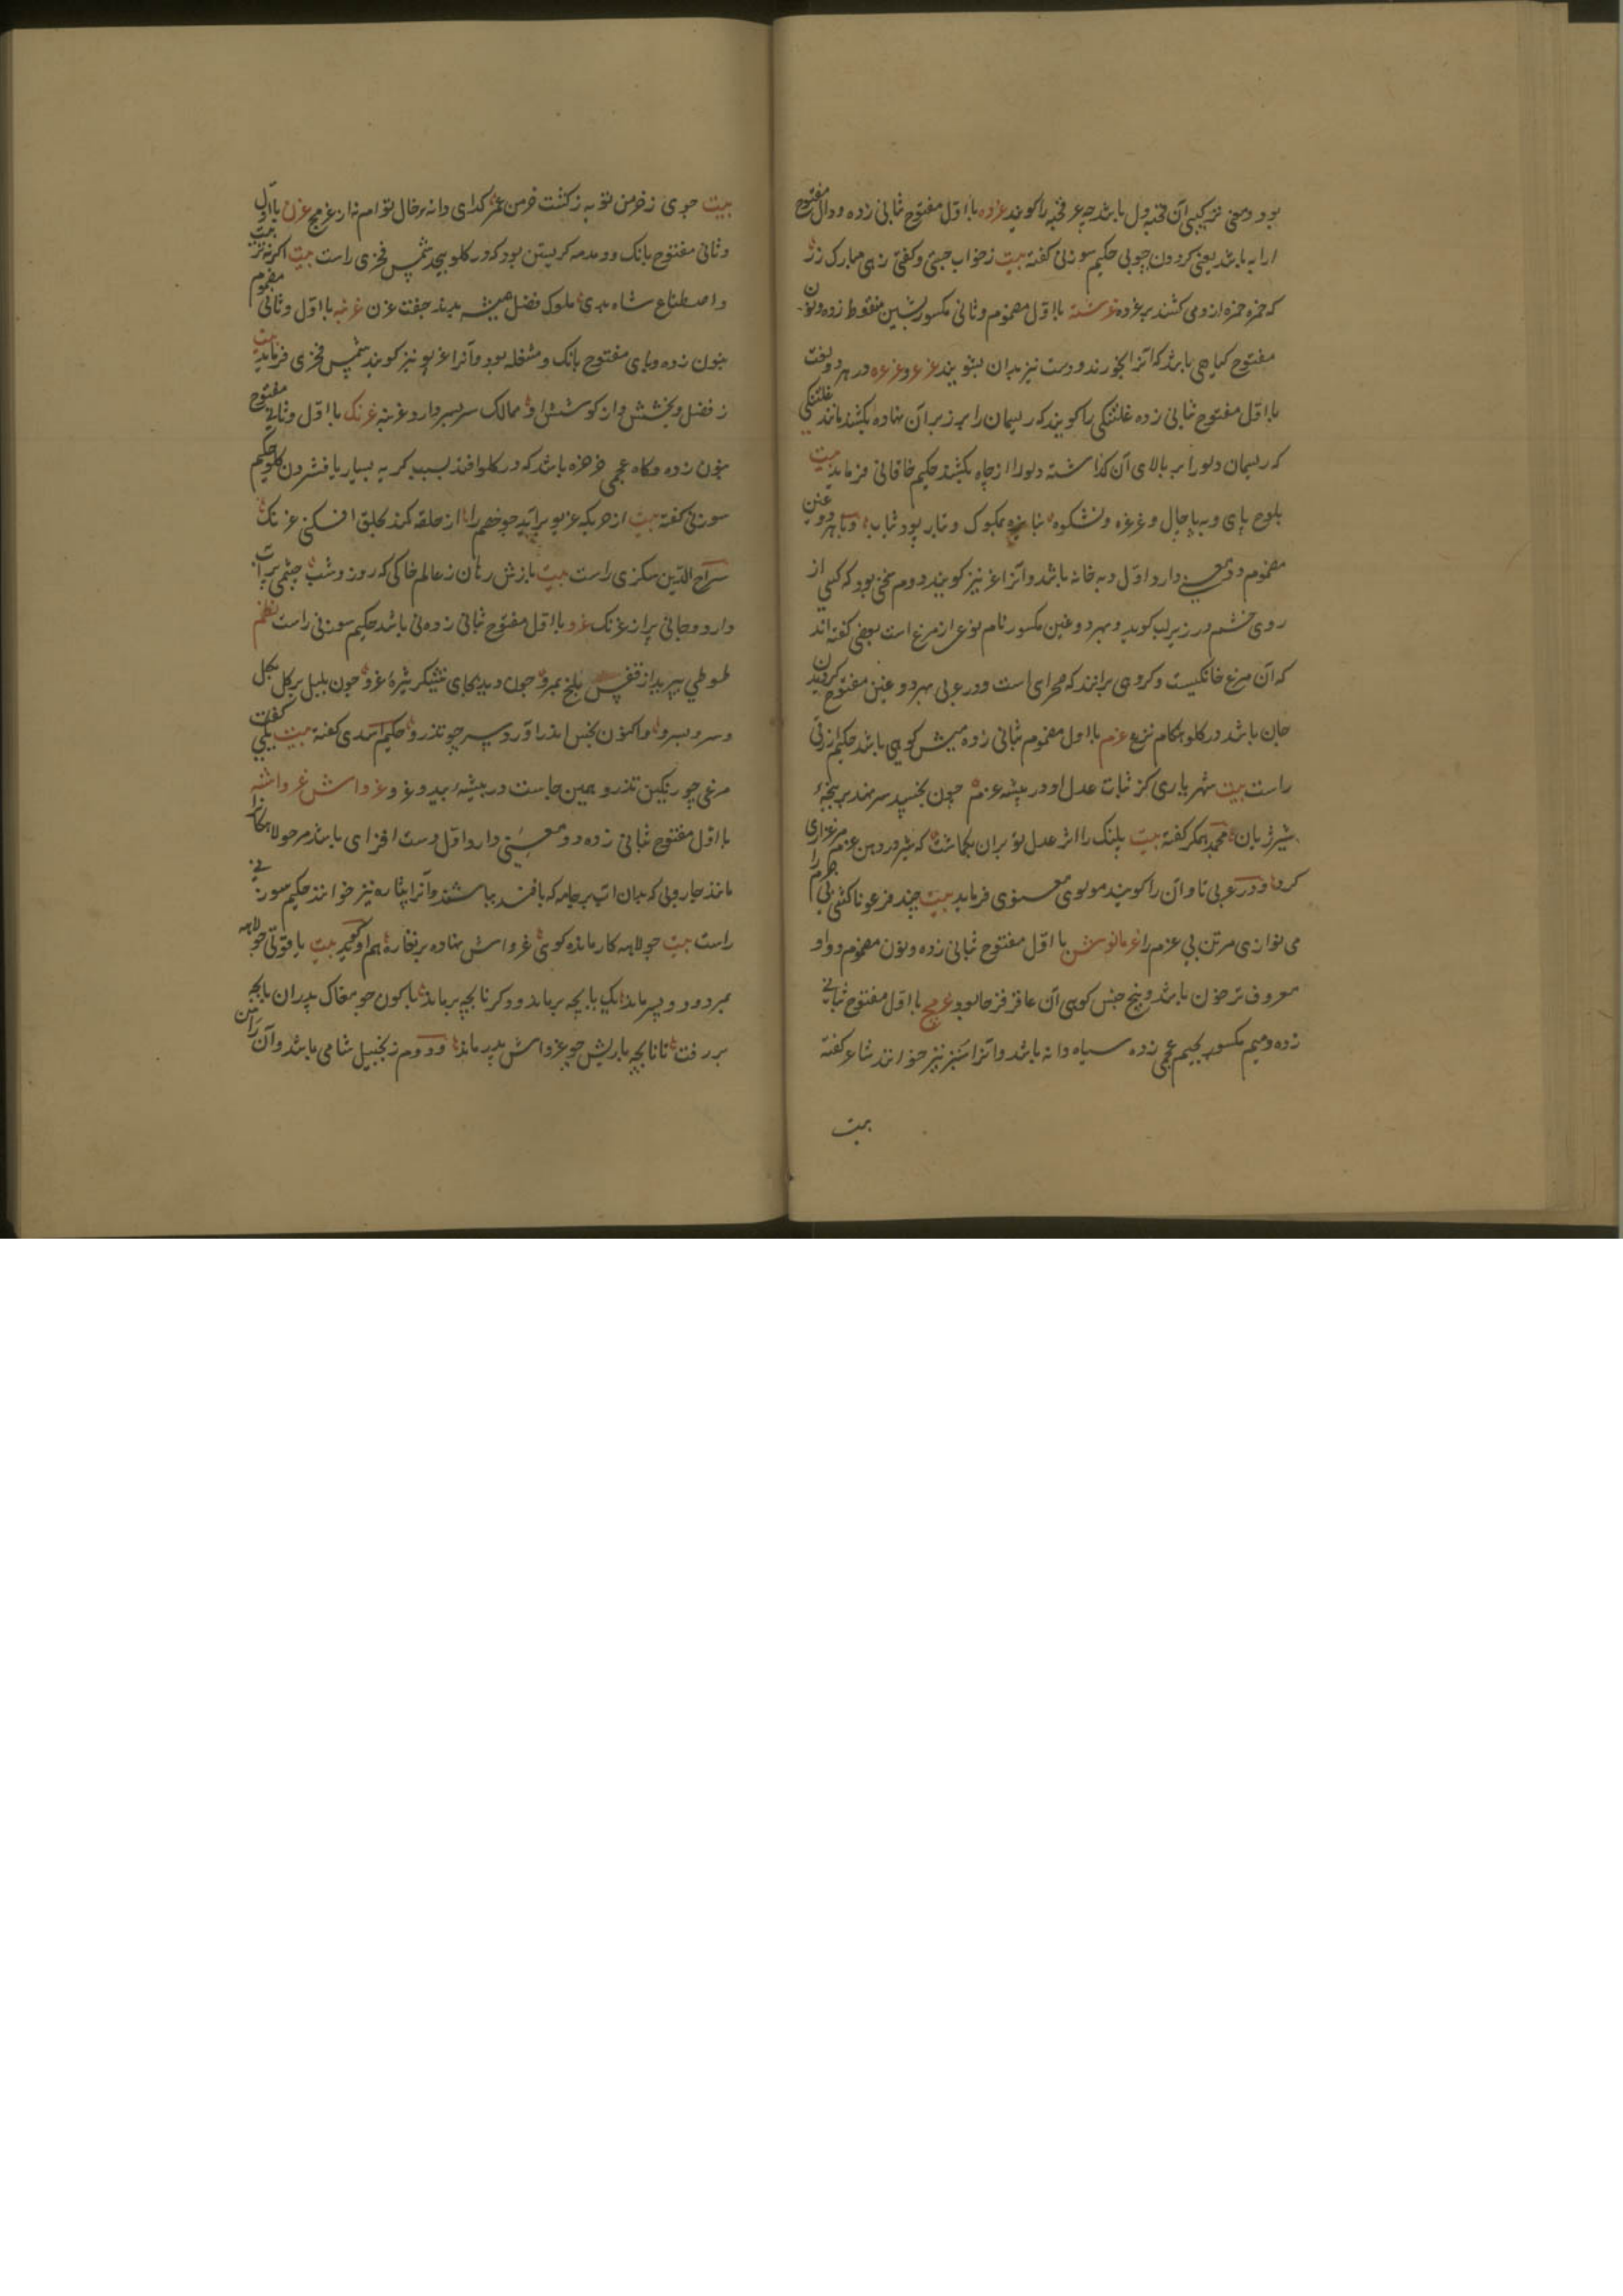 بود و معنی ترکیبی آن قحبه دل باشد چه غر قحبه را کویند غرده با اول مفتوح ثبانی زده و دال مفتوح
ارابه باشد یعنی کردون چوبی حکیم سوزنی کفته بیت زخواب جستی و کفتی زهی مبارک زن
که خمره خمره ازو می کشند بر غرده غرشنه با اول مضموم و ثانی مکسور بشین منقوط زده و نون
مفتوح کیاهی باشد که آنرا بخورند و دست نیز بدان بشویند غرغر و غرغره در هر دو لغت
با اول مفتوح ثبانی زده غلتنکی را کویند که ریسمان را بر زبر آن نهاده بکشند مانند غلتنکی
که ریسمان دلو را بر بالای آن کذاشته دلو را از چاه بکشند حکیم خاقانی فرماید بیت
بلوح پای و به پاچال و غرغره و بشکوه بنایره بمکوک و بتار پود ثیاب و با هر دو غین
مضموم دو معنی دارد اول دبه خانه باشد و آنرا غر نیز کویند دوم سخنی بود که کسی از
روی خشم در زیر لب کوید و بهر دو غین مکسور نام نوعی از مرغ است بعضی کفته اند
که آن مرغ خانکیست و کروهی برانند که صحرای است و در عربی بهر دو غین مفتوح کردیدن
جان باشد در کلو هنکام نزع غرم با اول مضموم ثبانی زده میش کوهی باشد حکیم ازرقی
راست بیت شهریاری کز ثبات عدل او در بیشه غرم چون بخسپد سر نهد بر پنجهٔ
شیر ژیان محمد همکر کفته بیت پلنک را اثر عدل تو بران بکماشت که شیر در دهن غرم مرغزاری
کرد و در عربی تاوان را کویند مولوی معنوی فرماید بیت چند فرعونا کشی بی جرم را
می نوازی مرتن بی غرم را غرمانوش با اول مفتوح ثبانی زده و نون مضموم و واو
معروف ترخون باشد و بیخ جنس کوهی آن عاقرقرحا بود غرمج با اول مفتوح ثبانی
زده و میم مکسور بجیم عجمی زده سیاه دانه باشد و آنرا شنیز نیز خوانند شاعر کفته
بیت
بیت جوی ز خرمن تو به ز کشت خرمن عمر کدای دانه بر خال توام نه از غرمج غرن با اول
و ثانی مفتوح بانک و دمدمه کریستن بود که در کلو بپیچد شمس فخری راست بیت اکر نه تربیت
و اصطناع شاه بدی ملوک فضل همیشه بدند جفت غرن غرنبه با اول و ثانی مضموم
بنون زده و بای مفتوح بانک و مشغله بود و آنرا غریو نیز کویند شمس فخری فرماید بیت
ز فضل و بخشش و از کوشش او ممالک سربسر دارد غرنبه غرنک با اول و ثانی مفتوح
بنون زده و کاف عجمی خرخره باشد که در کلو افتد بسبب کریه بسیار یا فشردن کلو حکیم
سوزنی کفته بیت از حربکه غریو برآید چو خصم را از حلقه کمند بحلق افکنی غرنک
سراج الدین سکزی راست بیت بازش رهان ز عالم خاکی که روز و شب چشمی پر آب
دارد و جانی پر از غرنک غرو با اول مفتوح ثبانی زده نی باشد حکیم سوزنی راست نظم
طوطی بپرید از قفس بلخ بمرو چون دید بجای نیشکر شیرهٔ غرو چون بلبل بر کل بکل
و سرو بسرو واکنون بخس اندر آورد سر چو تذرو حکیم اسدی کفته بیت یکی کفت
مرغی چو رنکین تذرو همین جاست در بیشهٔ بید و غرو غرواش غرواشه
با اول مفتوح ثبانی زده دو معنی دارد اول دست افزای باشد مر جولاهکانرا
مانند جاروبی که بدان آب بر جامه که بافند بپاشند و آنرا پتاره نیز خوانند حکیم سوزنی
راست بیت جولاهه کار مانده کوئی غرواش نهاده بر تغاره هم او کوید بیت یا قوتی جولاهه
بمرد و دو پسر ماند یک بابچه بر ماند و دکر نابچه بر ماند با کون چو مغاک پدران بابچه
بر رفت تا نابچه با ریش چو غرواش پدر ماند و دوم زنجبیل شامی باشد و آن راسن